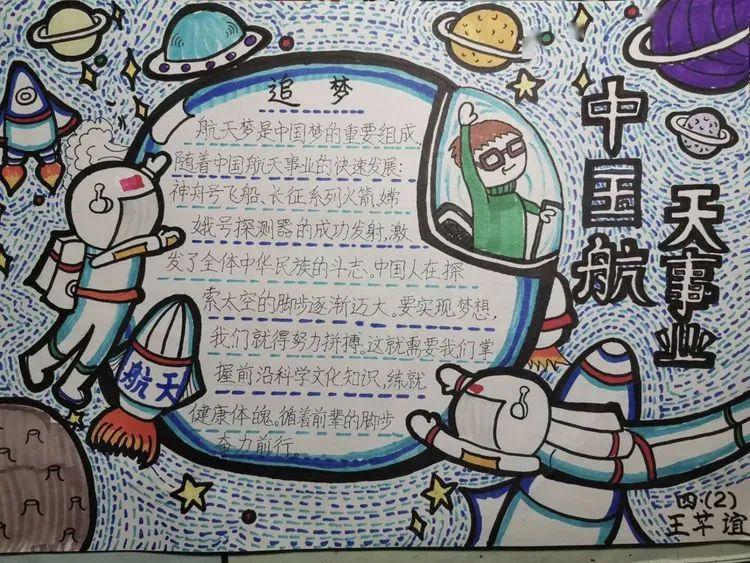 追梦
航天梦是中国梦的重要组成,
随着中国航天事业的快速发展:
神舟号飞船、长征系列火箭、嫦
娥号探测器的成功发射,激
发了全体中华民族的斗志。中国人在探
索太空的脚步逐渐迈大。要实现梦想,
我们就得努力拼搏。这就需要我们掌
握前沿科学文化知识,练就
健康体魄。循着前辈的脚步
奋力前行。
中国航
天事业
航天
四.(2)
王苹谊